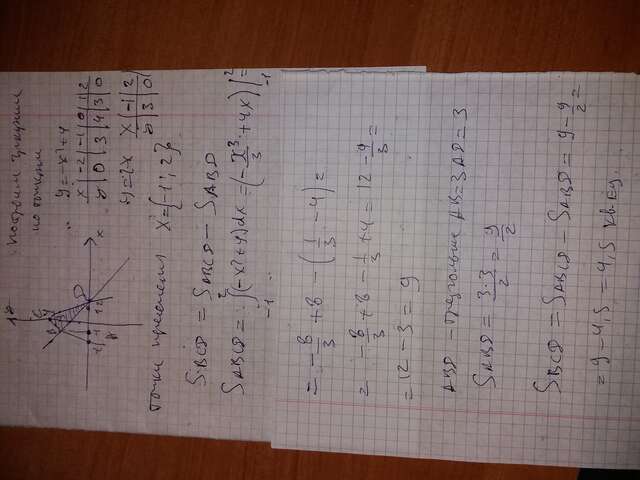 Построим функции
по точкам
y=-x²+4
x | -2 | -1 | 0 | 1 | 2
y | 0 | 3 | 4 | 3 | 0
y=2-x
x | -1 | 2
y | 3 | 0
точки пересечения x={-1; 2}
S BCD = S ABCD - S ABD
S ABCD = ∫₋₁² (-x²+4)dx = (-x³/3 + 4x) |₋₁² =
= -8/3 + 8 - (1/3 - 4) =
= -8/3 + 8 - 1/3 + 4 = 12 - 9/3 =
= 12 - 3 = 9
ABD - треугольник AB=3 AD=3
S ABD = 3·3/2 = 9/2
S BCD = S ABCD - S ABD = 9 - 9/2 =
= 9 - 4,5 = 4,5 кв.ед.